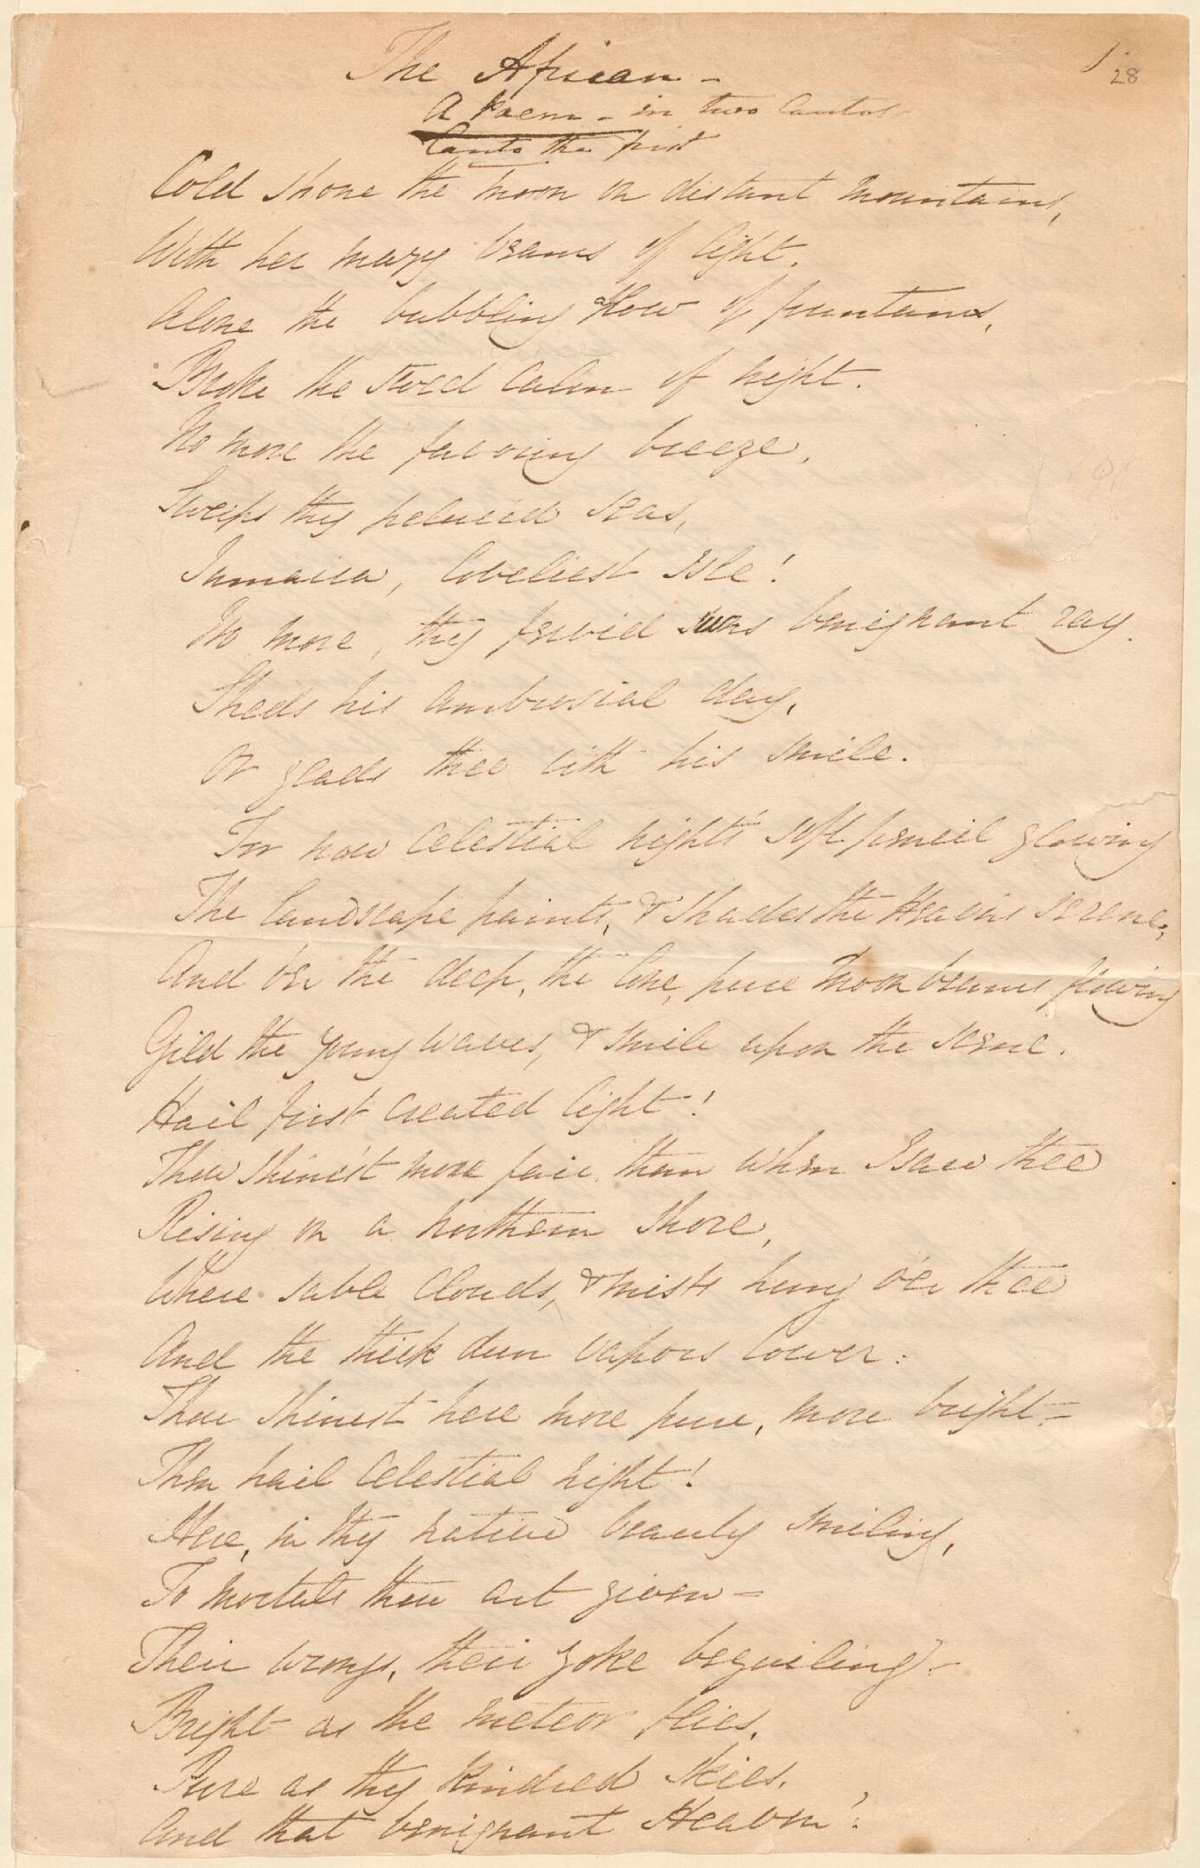 The African -
1. 28
A Poem - in two Cantos
Canto the first
Cold shone the moon on distant mountains,
With her mazy beams of light.
Alone the bubbling flow of fountains,
Broke the still calm of night.
No more the favoring breeze,
Sweeps thy pelucid seas,
Jamaica, loveliest Isle!
No more, thy fervid suns benignant ray.
Sheds his ambrosial day,
Or glads thee with his smile.
For now celestial nights soft pencil glowing
The landscape paints, & shades the Heavens serene,
And o'er the deep, the lone, pure moon beams flowing
Gild the young waves, & smile upon the scene.
Hail first created light!
Thou shinest more fair than when I saw thee
Rising on a northern shore,
Where sable clouds, & mists hung o'er thee
And the thick dun vapors lower:
Thou shinest here more pure, more bright -
Then hail celestial night!
Here, in thy native beauty smiling,
To mortals thou art given -
Their wrongs, their yoke beguiling -
Bright as the meteor flies,
Pure as thy kindred skies,
And that benignant Heaven!